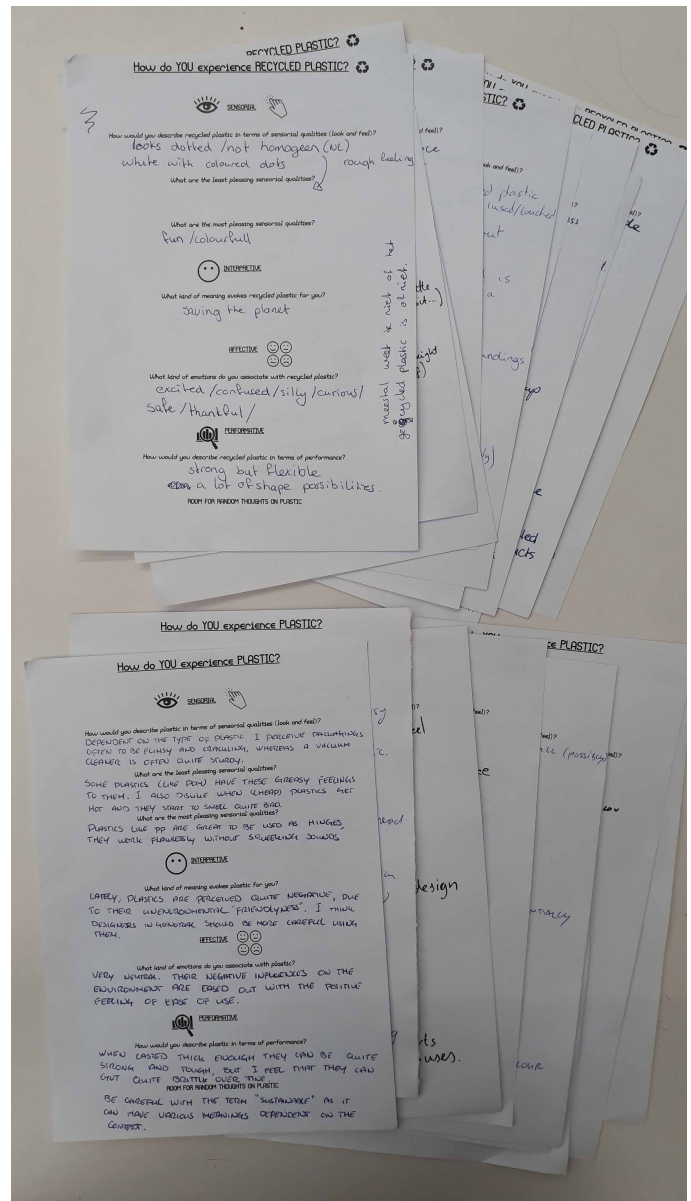 RECYCLED PLASTIC?
How do YOU experience RECYCLED PLASTIC?
SENSORIAL
How would you describe recycled plastic in terms of sensorial qualities (look and feel)?
looks dotted / not homogeen (NL)
white with coloured dots
rough feeling
What are the least pleasing sensorial qualities?
What are the most pleasing sensorial qualities?
fun / colourfull
INTERPRETIVE
What kind of meaning evokes recycled plastic for you?
saving the planet
AFFECTIVE
What kind of emotions do you associate with recycled plastic?
excited / confused / silly / curious /
safe / thankful /
PERFORMATIVE
How would you describe recycled plastic in terms of performance?
strong but flexible
a lot of shape possibilities.
ROOM FOR RANDOM THOUGHTS ON PLASTIC
meestal weet ik niet of het
gerecycled plastic is of niet.
d feel)?
STIC?
ook and feel)?
d plastic
used/touched
out
is
a
ndings
CLED PLASTIC
led
cts
How do YOU experience PLASTIC?
How do YOU experience PLASTIC?
SENSORIAL
How would you describe plastic in terms of sensorial qualities (look and feel)?
DEPENDENT ON THE TYPE OF PLASTIC. I PERCEIVE PACKAGINGS
OFTEN TO BE FLIMSY AND CRACKLING, WHEREAS A VACUUM
CLEANER IS OFTEN QUITE STURDY.
What are the least pleasing sensorial qualities?
SOME PLASTICS (LIKE POM) HAVE THESE GREASY FEELINGS
TO THEM. I ALSO DISLIKE WHEN (CHEAP) PLASTICS GET
HOT AND THEY START TO SMELL QUITE BAD.
What are the most pleasing sensorial qualities?
PLASTICS LIKE PP ARE GREAT TO BE USED AS HINGES,
THEY WORK FLAWLESSLY WITHOUT SQUEEKING SOUNDS
INTERPRETIVE
What kind of meaning evokes plastic for you?
LATELY, PLASTICS ARE PERCEIVED QUITE NEGATIVE, DUE
TO THEIR UNENVIRONMENTAL "FRIENDLYNESS". I THINK
DESIGNERS IN GENERAL SHOULD BE MORE CAREFUL USING
THEM.
AFFECTIVE
What kind of emotions do you associate with plastic?
VERY NEUTRAL. THEIR NEGATIVE INFLUENCES ON THE
ENVIRONMENT ARE EASED OUT WITH THE POSITIVE
FEELING OF EASE OF USE.
PERFORMATIVE
How would you describe plastic in terms of performance?
WHEN CASTED THICK ENOUGH THEY CAN BE QUITE
STRONG AND TOUGH, BUT I FEEL THAT THEY CAN
GET QUITE BRITTLE OVER TIME.
ROOM FOR RANDOM THOUGHTS ON PLASTIC
BE CAREFUL WITH THE TERM "SUSTAINABLE" AS IT
CAN HAVE VARIOUS MEANINGS DEPENDENT ON THE
CONTEXT.
design
uses.
ce PLASTIC?
feel)?
(possibly)
NTIALLY
COLOUR